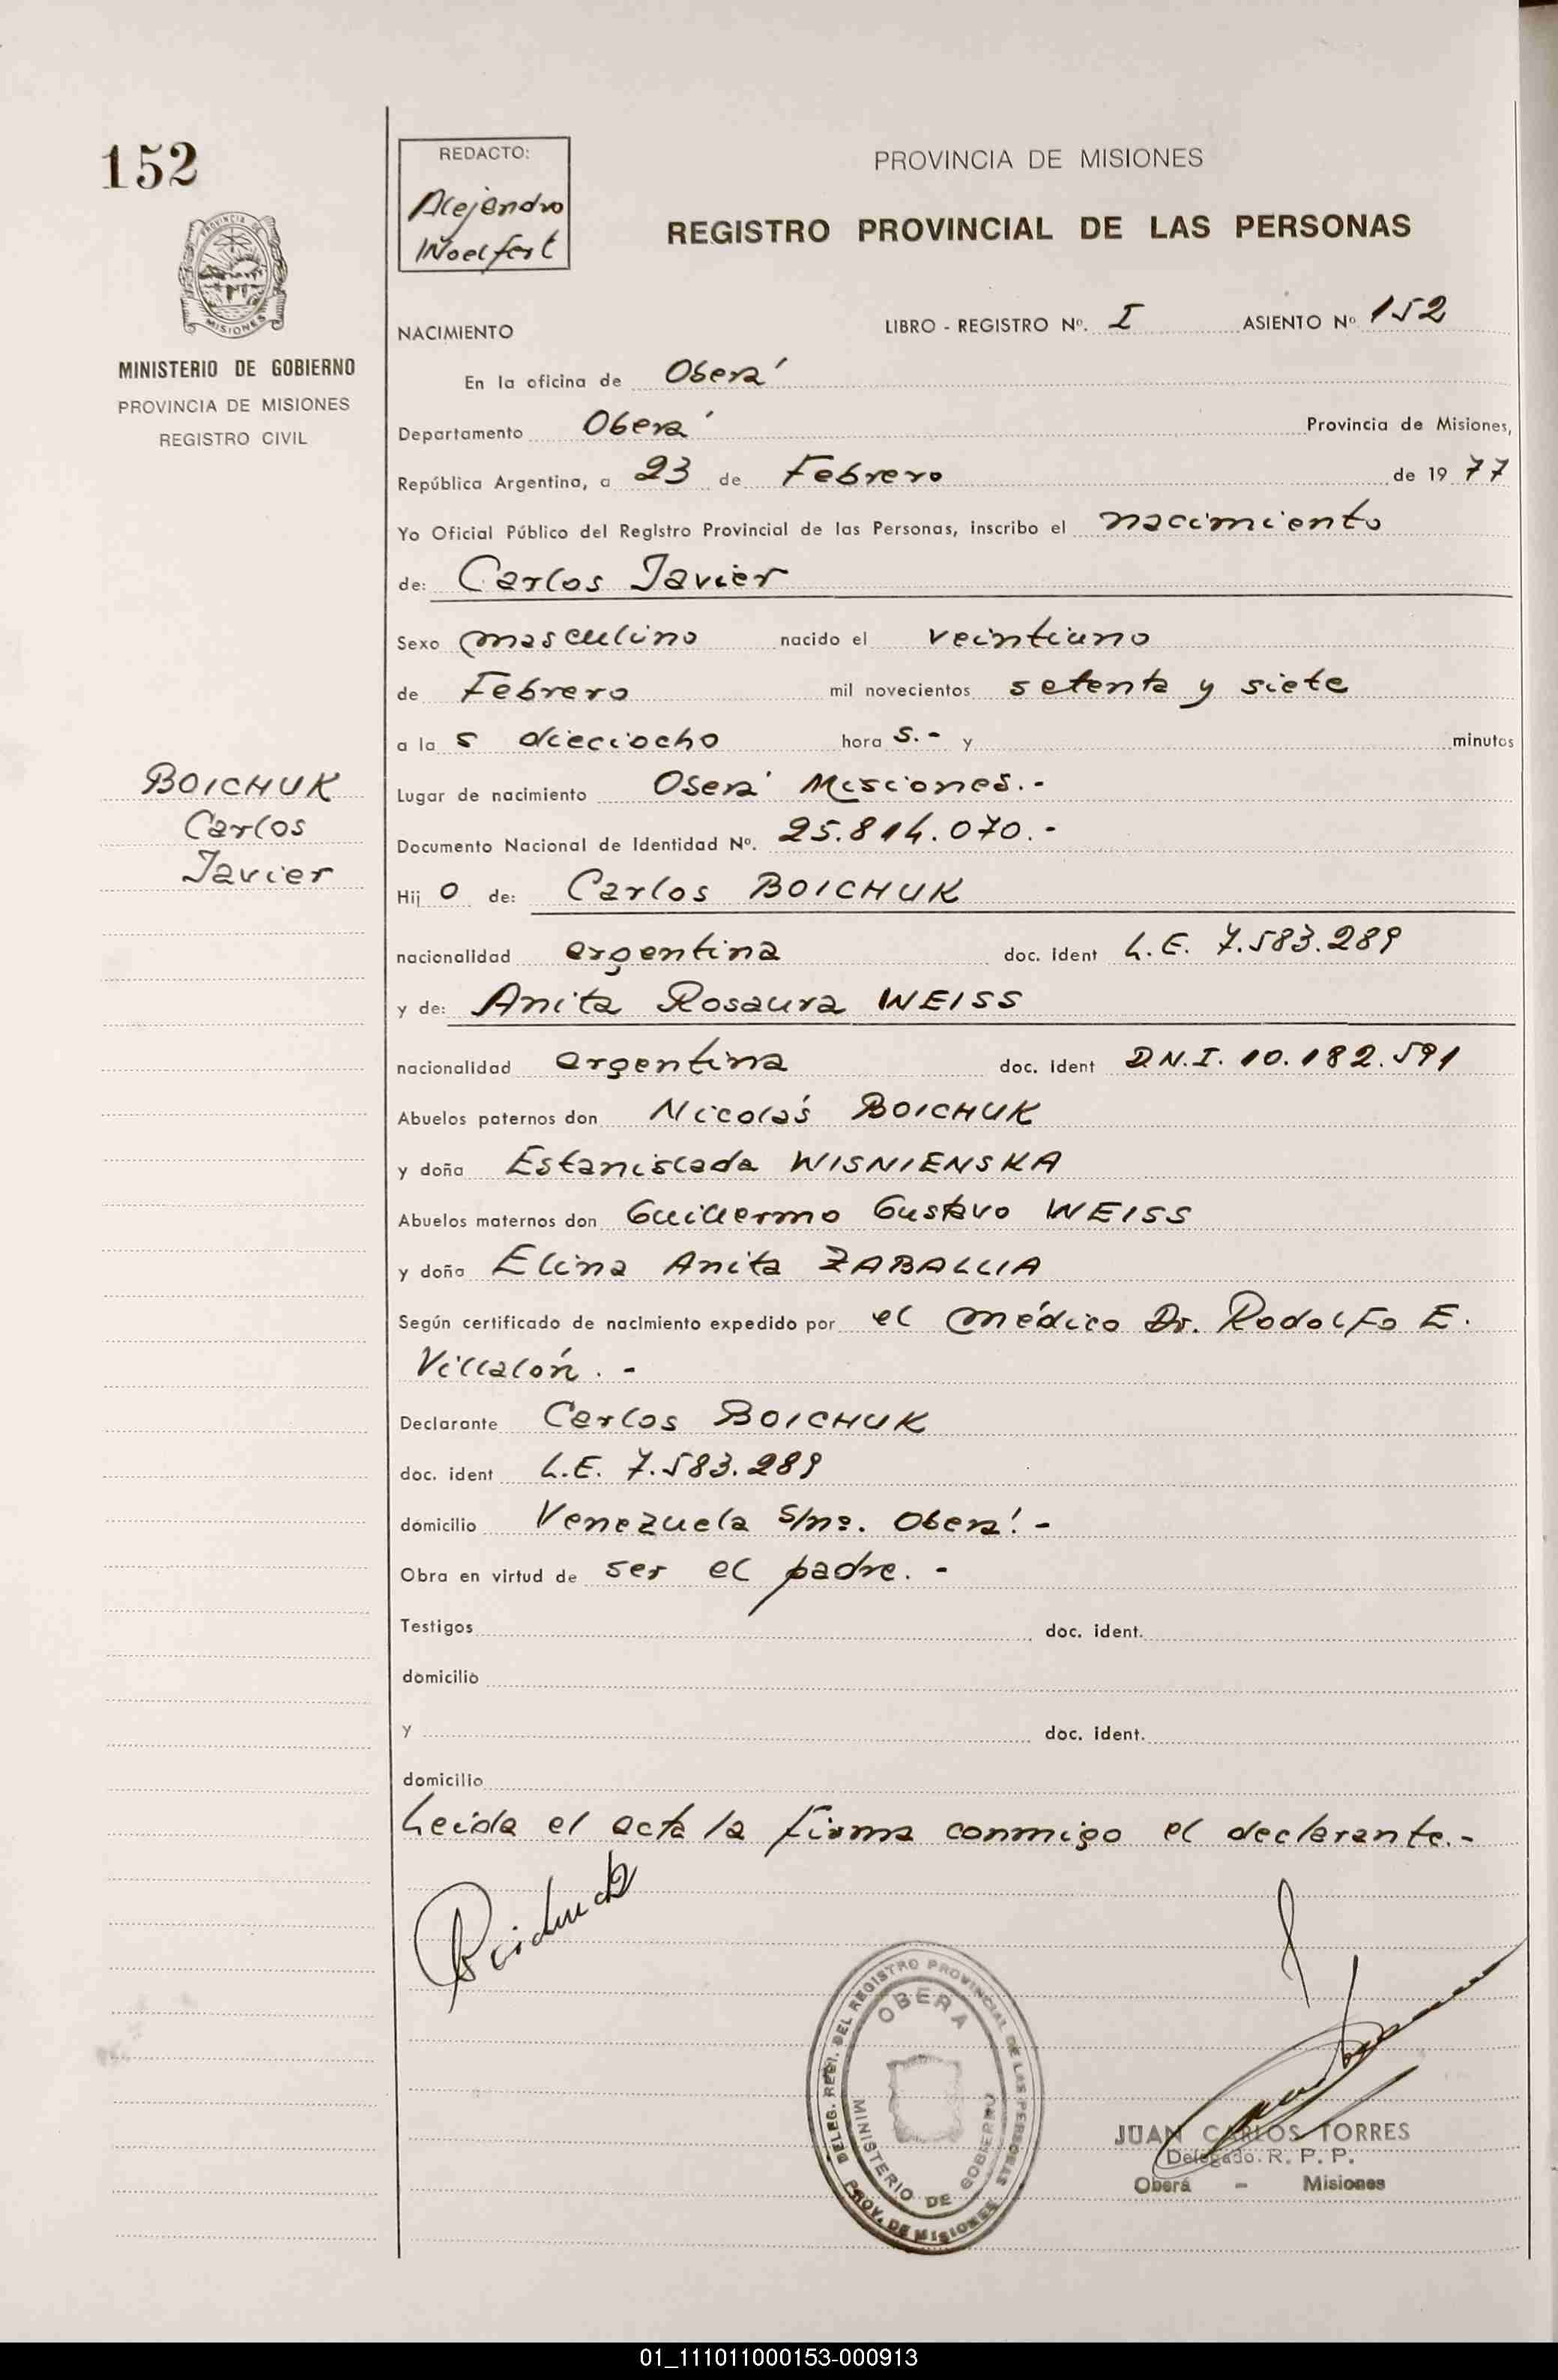 152
PROVINCIA DE MISIONES
MINISTERIO DE GOBIERNO
PROVINCIA DE MISIONES
REGISTRO CIVIL
BOICHUK
Carlos
Javier
REDACTO:
Alejandro
PROVINCIA DE MISIONES
REGISTRO PROVINCIAL DE LAS PERSONAS
NACIMIENTO LIBRO - REGISTRO Nº. I ASIENTO Nº 152
En la oficina de Oberá
Departamento Oberá Provincia de Misiones,
República Argentina, a 23 de Febrero de 1977
Yo Oficial Público del Registro Provincial de las Personas, inscribo el nacimiento
de: Carlos Javier
Sexo masculino nacido el veintiuno
de Febrero mil novecientos setenta y siete
a la s dieciocho hora s.- y minutos
Lugar de nacimiento Oberá Misiones.-
Documento Nacional de Identidad Nº. 25.814.070.-
Hij o de: Carlos BOICHUK
nacionalidad argentina doc. ident L.E. 7.583.289
y de: Anita Rosaura WEISS
nacionalidad argentina doc. ident D.N.I. 10.182.591
Abuelos paternos don Nicolás BOICHUK
y doña Estanislada WISNIENSKA
Abuelos maternos don Guillermo Gustavo WEISS
y doña Elina Anita ZABALLIA
Según certificado de nacimiento expedido por el médico Dr. Rodolfo E.
Villalón.-
Declarante Carlos BOICHUK
doc. ident L.E. 7.583.289
domicilio Venezuela s/nº. Oberá.-
Obra en virtud de ser el padre.-
Testigos doc. ident.
domicilio
y doc. ident.
domicilio
Leida el acta la firma conmigo el declarante.-
Boichuk
DELEG. REGI. DEL REGISTRO PROVINCIAL DE LAS PERSONAS
OBERA
MINISTERIO DE GOBIERNO
PROV. DE MISIONES
JUAN CARLOS TORRES
Delegado. R. P. P.
Oberá - Misiones
01_111011000153-000913